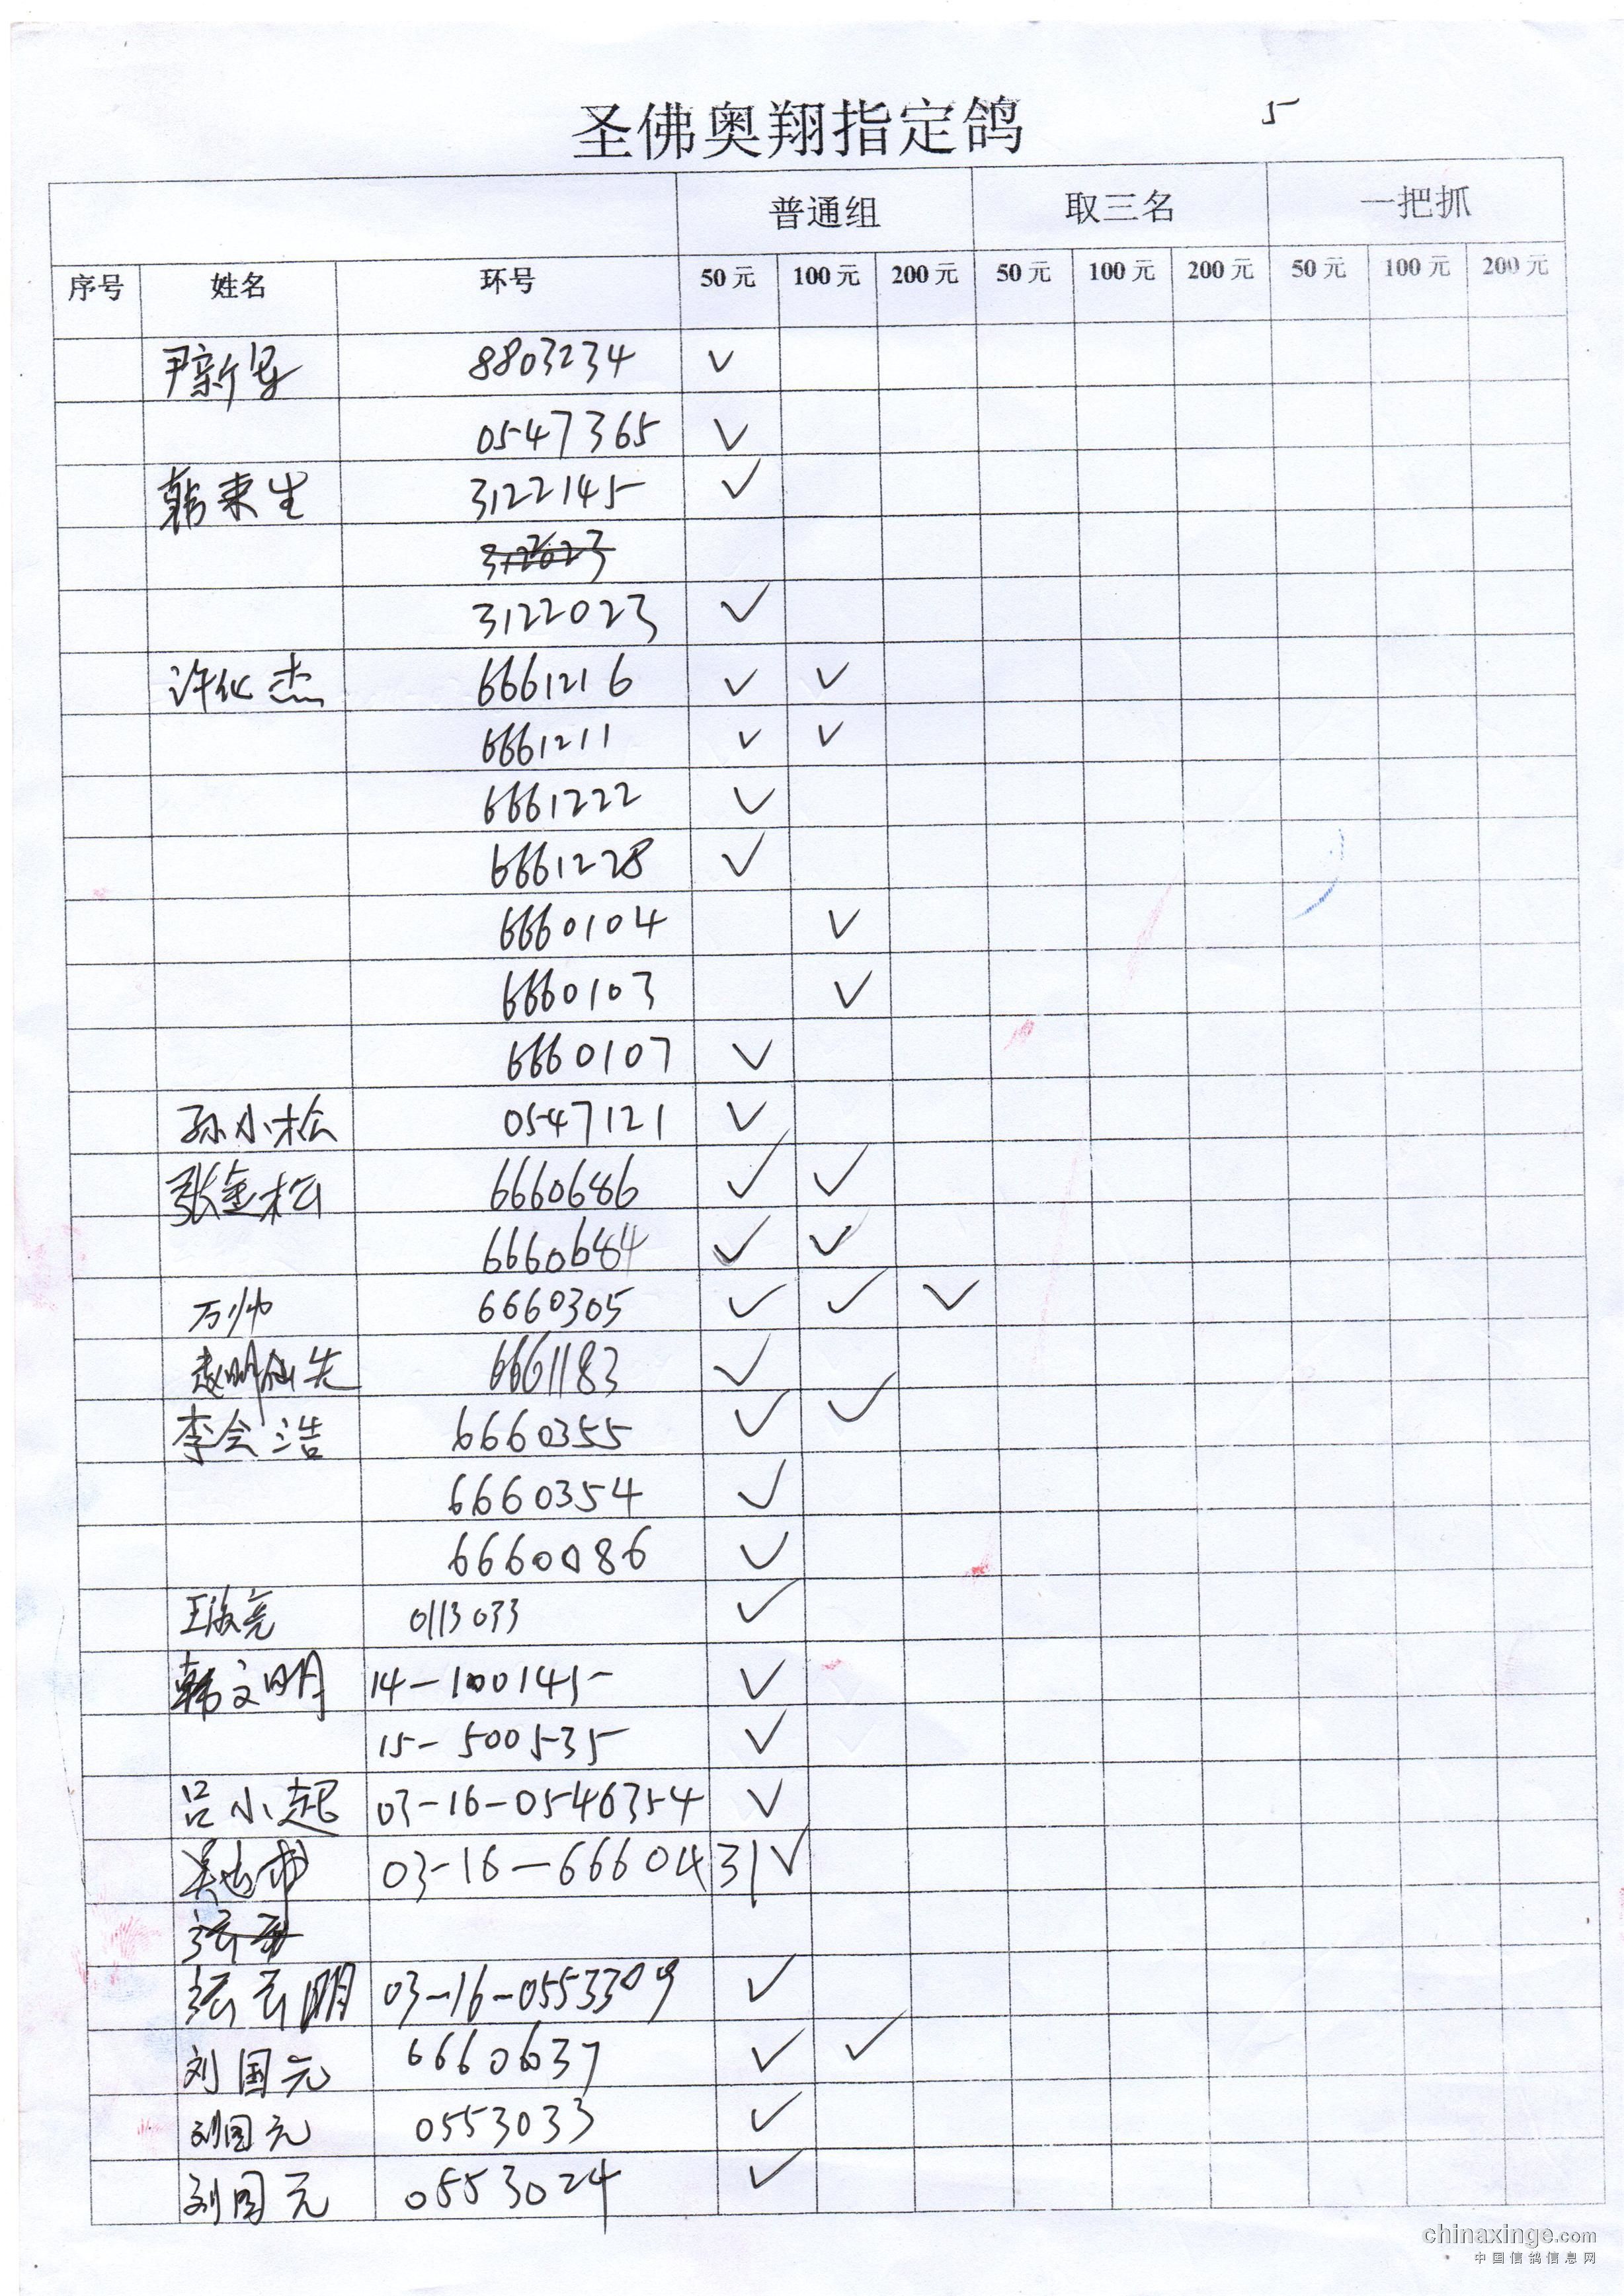 圣佛奥翔指定鸽 5
普通组 取三名 一把抓
序号 姓名 环号 50元 100元 200元 50元 100元 200元 50元 100元 200元
8803234 ✓
0547365 ✓
韩来生 3122145 ✓
3122023 ✓
许化杰 6661216 ✓ ✓
6661211 ✓ ✓
6661222 ✓
6661228 ✓
6660104 ✓
6660103 ✓
6660107 ✓
孙小松 0547121 ✓
张金松 6660686 ✓ ✓
6660684 ✓ ✓
万帅 6660305 ✓ ✓ ✓
6661183 ✓
李会浩 6660355 ✓ ✓
6660354 ✓
6660086 ✓
0113033 ✓
韩文明 14-100145 ✓
15-500535 ✓
吕小起 03-16-0546354 ✓
03-16-6660431 ✓
张云明 03-16-0553309 ✓
刘国元 6660637 ✓ ✓
刘国元 0553033 ✓
刘国元 0553024 ✓
chinaxinge.com
中国信鸽信息网